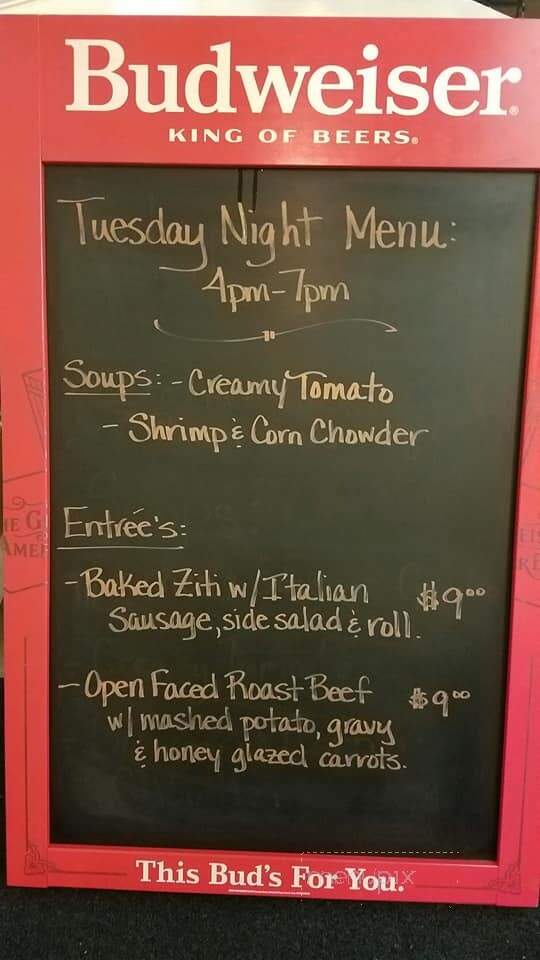 Budweiser®
KING OF BEERS®
Tuesday Night Menu:
4pm-7pm
Soups: - Creamy Tomato
- Shrimp & Corn Chowder
Entrée's:
- Baked Ziti w/ Italian $9.00
Sausage, side salad & roll.
- Open Faced Roast Beef $9.00
w/ mashed potato, gravy
& honey glazed carrots.
This Bud's For You.